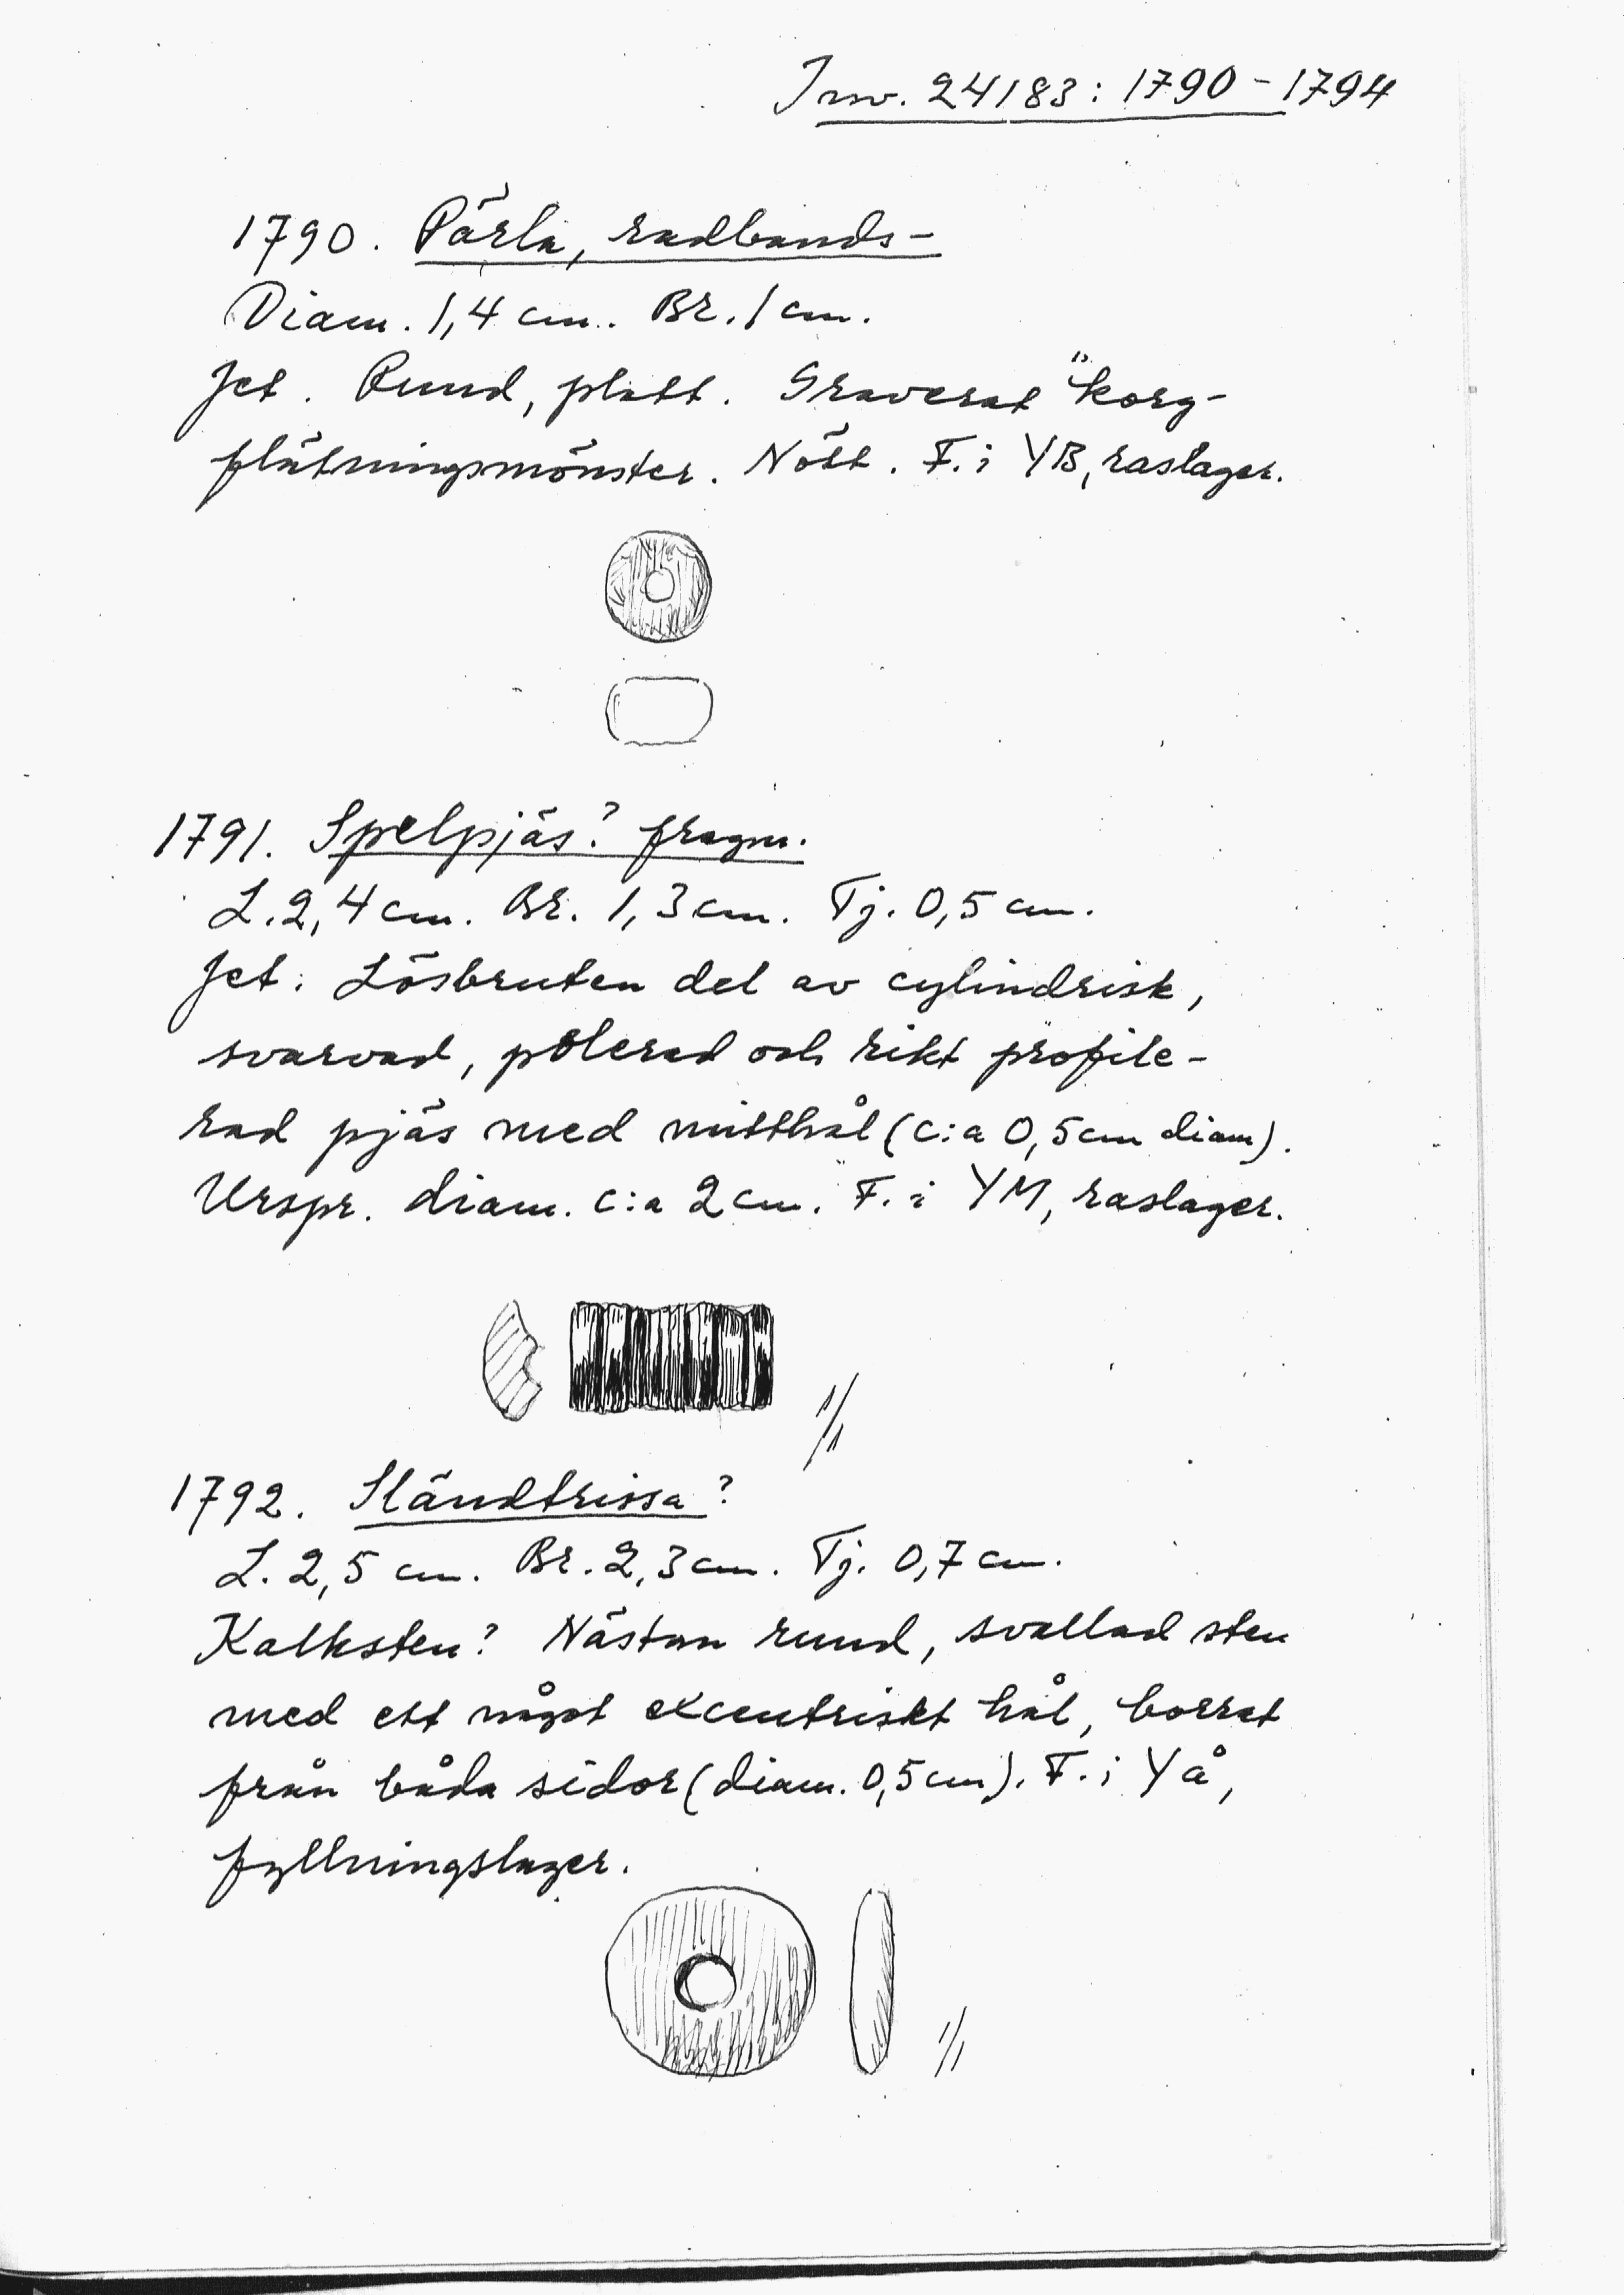 Inv. 24183: 1790-1794
1790. Pärla, radbands-
Diam. 1,4 cm. Br. 1 cm.
Jet. Rund, platt. Graverat "korg-
flätningsmönster. Nött. F. i YB, raslager.
1791. Spelpjäs? fragm.
L. 2,4 cm. Br. 1,3 cm. Tj. 0,5 cm.
Jet. Lösbruten del av cylindrisk,
svarvad, polerad och rikt profile-
rad pjäs med mitthål (c:a 0,5 cm diam).
Urspr. diam. c:a 2 cm. F. i YM, raslager.
1/1
1792. Sländtrissa?
L. 2,5 cm. Br. 2,3 cm. Tj. 0,7 cm.
Kalksten? Nästan rund, svallad sten
med ett något excentriskt hål, borrat
från båda sidor (diam. 0,5 cm). F. i Yå,
fyllningslager.
1/1